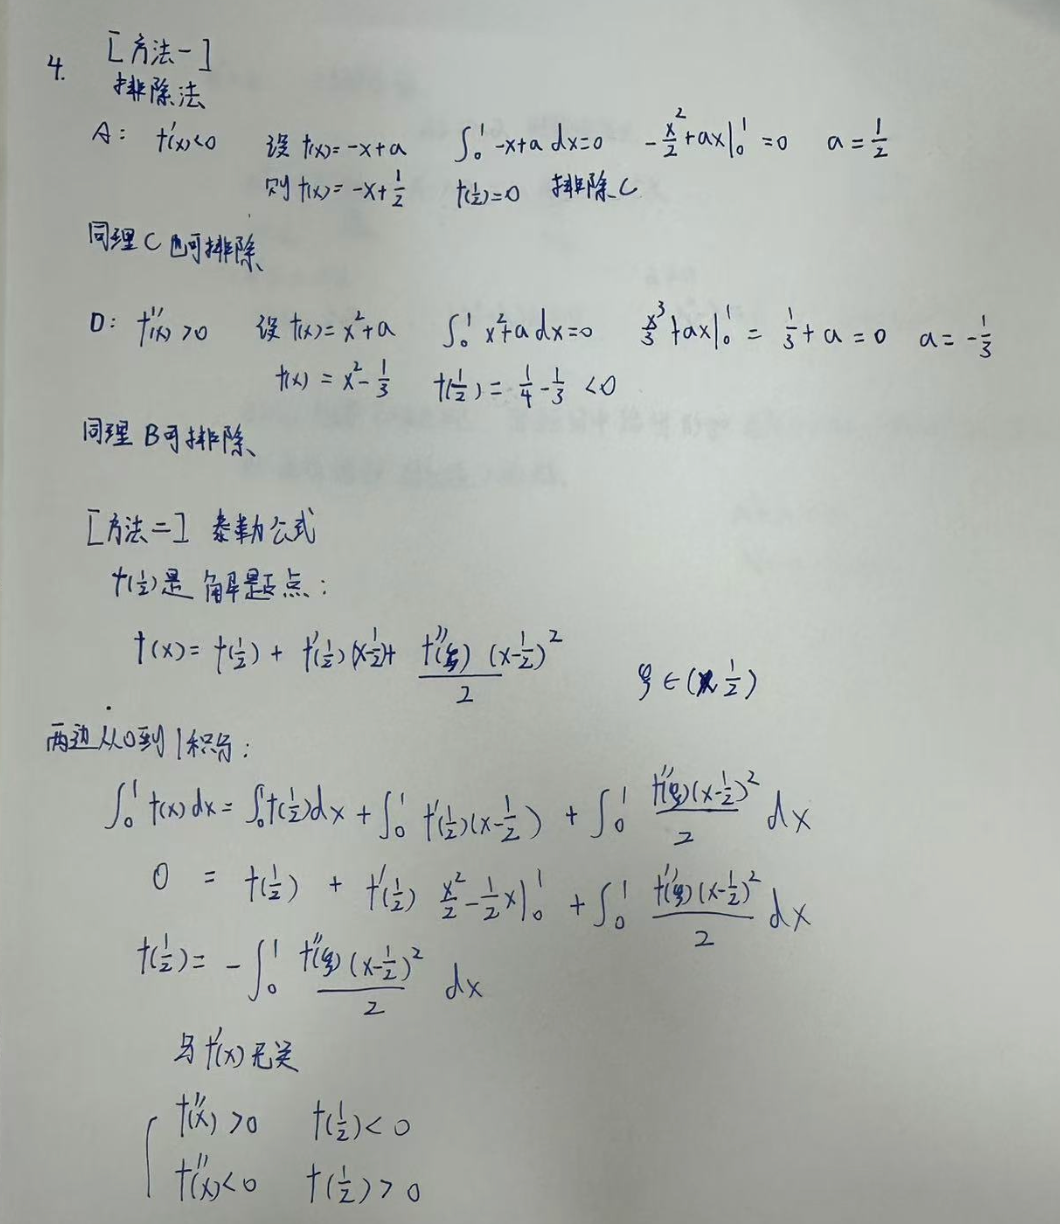 4. [方法一]
排除法
A: f'(x)<0 设f(x)=-x+a ∫₀¹ -x+a dx=0 -x²/2+ax|₀¹=0 a=1/2
则f(x)=-x+1/2 f(1/2)=0 排除C
同理C也可排除
D: f''(x)>0 设f(x)=x²+a ∫₀¹ x²+a dx=0 x³/3+ax|₀¹=1/3+a=0 a=-1/3
f(x)=x²-1/3 f(1/2)=1/4-1/3<0
同理B可排除
[方法二] 泰勒公式
f(1/2)是解题点:
f(x)=f(1/2)+f'(1/2)(x-1/2)+f''(ξ)(x-1/2)²/2 ξ∈(x,1/2)
两边从0到1积分:
∫₀¹ f(x)dx=∫₀¹f(1/2)dx+∫₀¹ f'(1/2)(x-1/2)+∫₀¹ f''(ξ)(x-1/2)²/2 dx
0 = f(1/2) + f'(1/2) x²/2-1/2x|₀¹ +∫₀¹ f''(ξ)(x-1/2)²/2 dx
f(1/2)=-∫₀¹ f''(ξ)(x-1/2)²/2 dx
与f'(x)无关
{ f''(x)>0 f(1/2)<0
f''(x)<0 f(1/2)>0